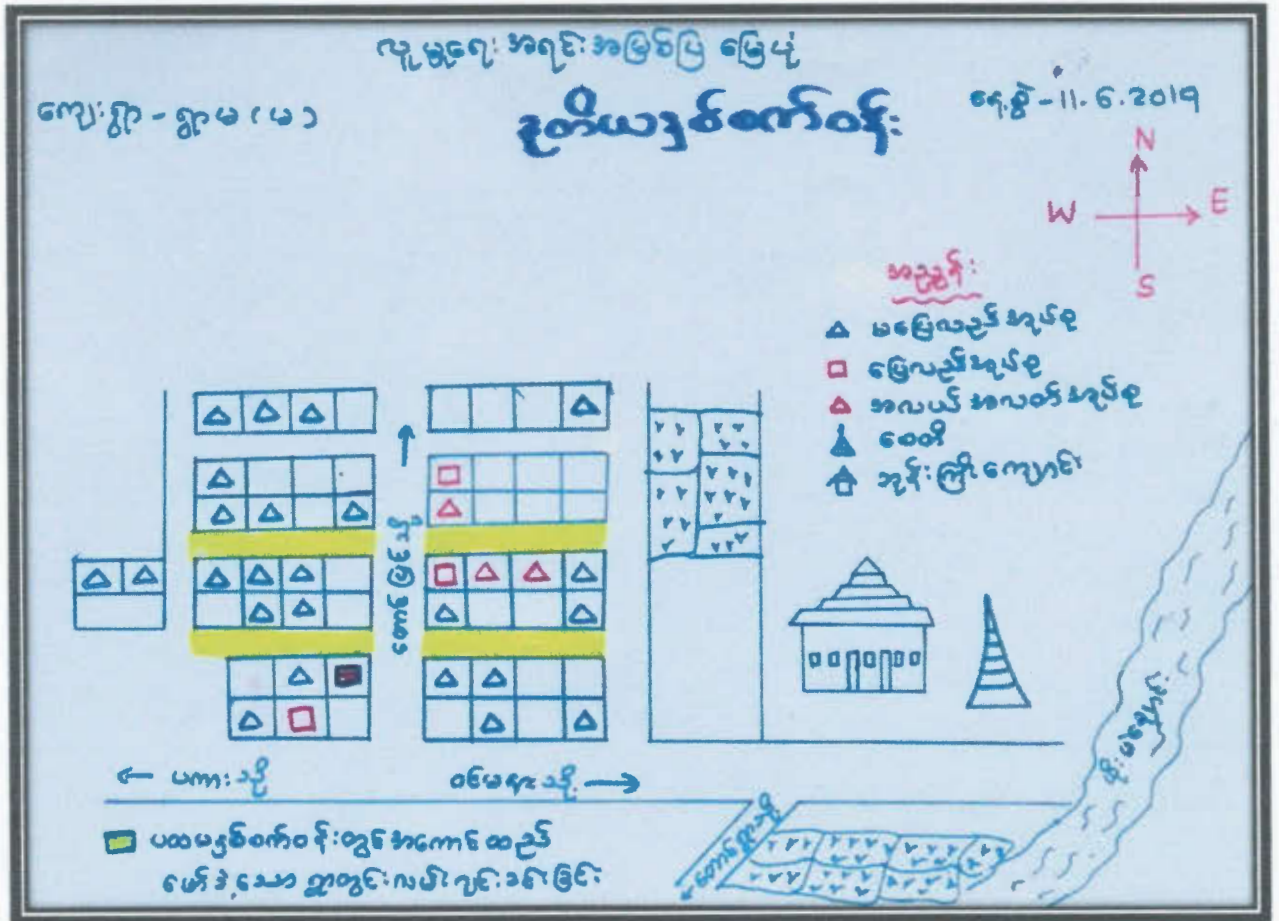 လူမှုရေး အရင်းအမြစ်ပြ မြေပုံ
ကျေးရွာ - ရွာမ (မ)
ဒုတိယနှစ်စက်ဝန်း
နေ့စွဲ - 11.6.2019
N
W
E
S
အညွှန်း
မပြေလည်အုပ်စု
ပြေလည်အုပ်စု
အလယ်အလတ်အုပ်စု
စေတီ
ဘုန်းကြီးကျောင်း
တောင်မြင့်သို့
← ပကားသို့
သို့ →
ပထမနှစ်စက်ဝန်းတွင်အကောင်ထည်
ဖော်ခဲ့သော ရွာတွင်းလမ်းခင်းခြင်း